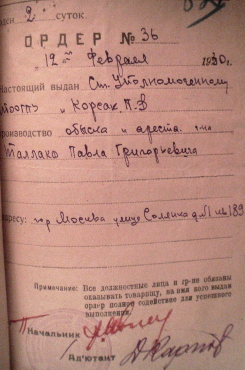 2 суток.
ОРДЕР № 36
"12" февраля 1930г.
Настоящий выдан Ст. Уполномоченному
и Корсак П.В
производство обыска и ареста
Таллако Павла Григорьевича
адресу: гор Москва улице
Примечание: Все должностные лица и гр-не обязаны
оказывать товарищу, на имя кого выдан
ордер полное содействие для успешного
выполнения.
Начальник
Ад'ютант